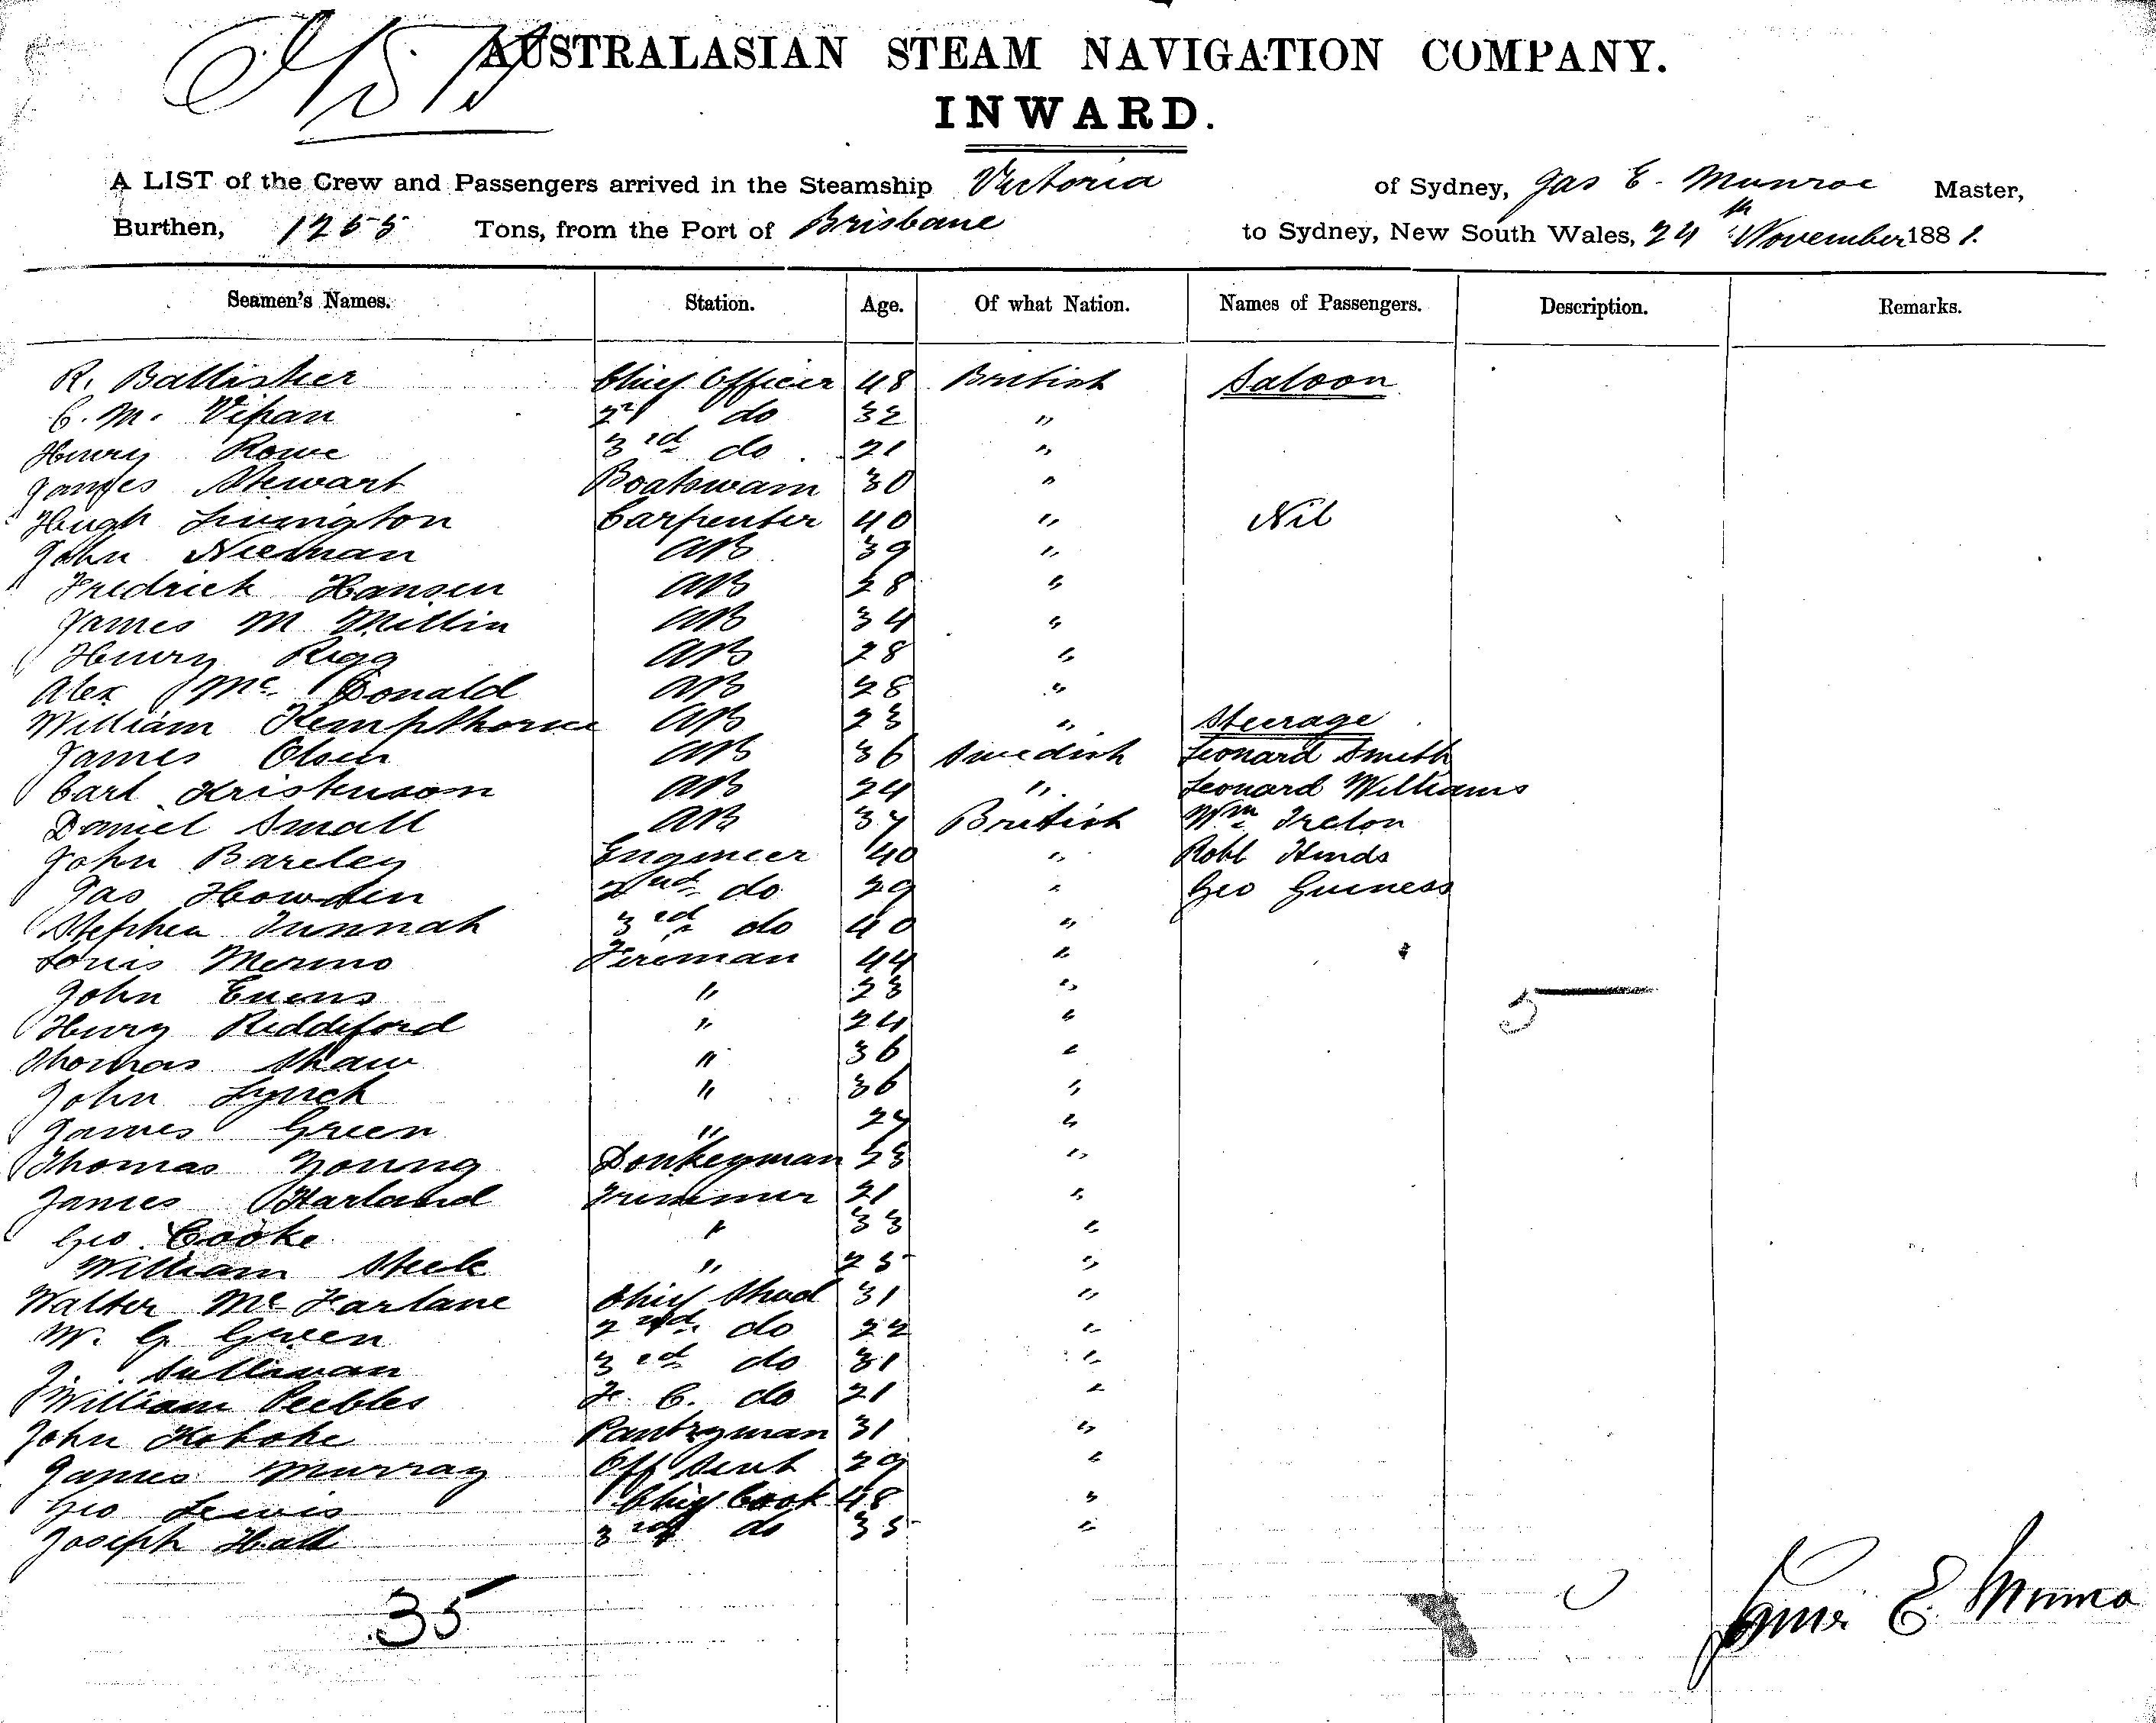 AUSTRALASIAN STEAM NAVIGATION COMPANY.
INWARD.
A LIST of the Crew and Passengers arrived in the Steamship Victoria of Sydney, Jas E. Munroe Master,
Burthen, 1255 Tons, from the Port of Brisbane to Sydney, New South Wales, 24th November 1881.
Seamen's Names. Station. Age. Of what Nation. Names of Passengers. Description. Remarks.
R. Battisher Chief Officer 48 British Saloon
C. M. Vipan 2nd do 32 "
Henry Rowe 3rd do 21 "
James Stewart Boatswain 30 "
Hugh Livington Carpenter 40 " Nil
John Nieman AB 39 "
Fredrick Hansen AB 28 "
James M Millin AB 34 "
Henry Rigg AB 28 "
Alex Mc Donald AB 28 "
William Kempthorne AB 23 " Steerage
James Olsen AB 36 Swedish Leonard Smith
Carl Kristenson AB 24 " Leonard Williams
Daniel Small AB 37 British Wm Ireton
John Bareley Engineer 40 " Robt Hinds
Jas Howden 2nd do 29 " Geo Guiness
Stephen Tunnah 3rd do 40 "
Louis Merino Fireman 44 "
John Evens " 23 "
Henry Riddiford " 24 " 5
Thomas Shaw " 36 "
John Lynch " 36 "
James Green " 27 "
Thomas Young Donkeyman 23 "
James Harland Trimmer 21 "
Geo. Cooke " 33 "
William Steele " 25 "
Walter Mc Farlane Chief Stwd 31 "
W. G. Green 2nd do 22 "
J. Sullivan 3rd do 31 "
William Peebles F. C. do 21 "
John Pantryman 31 "
James Murray Off Servt 29 "
Geo Lewis Chief Cook 48 "
Joseph Hall 3rd do 35 "
35
James E. Munro